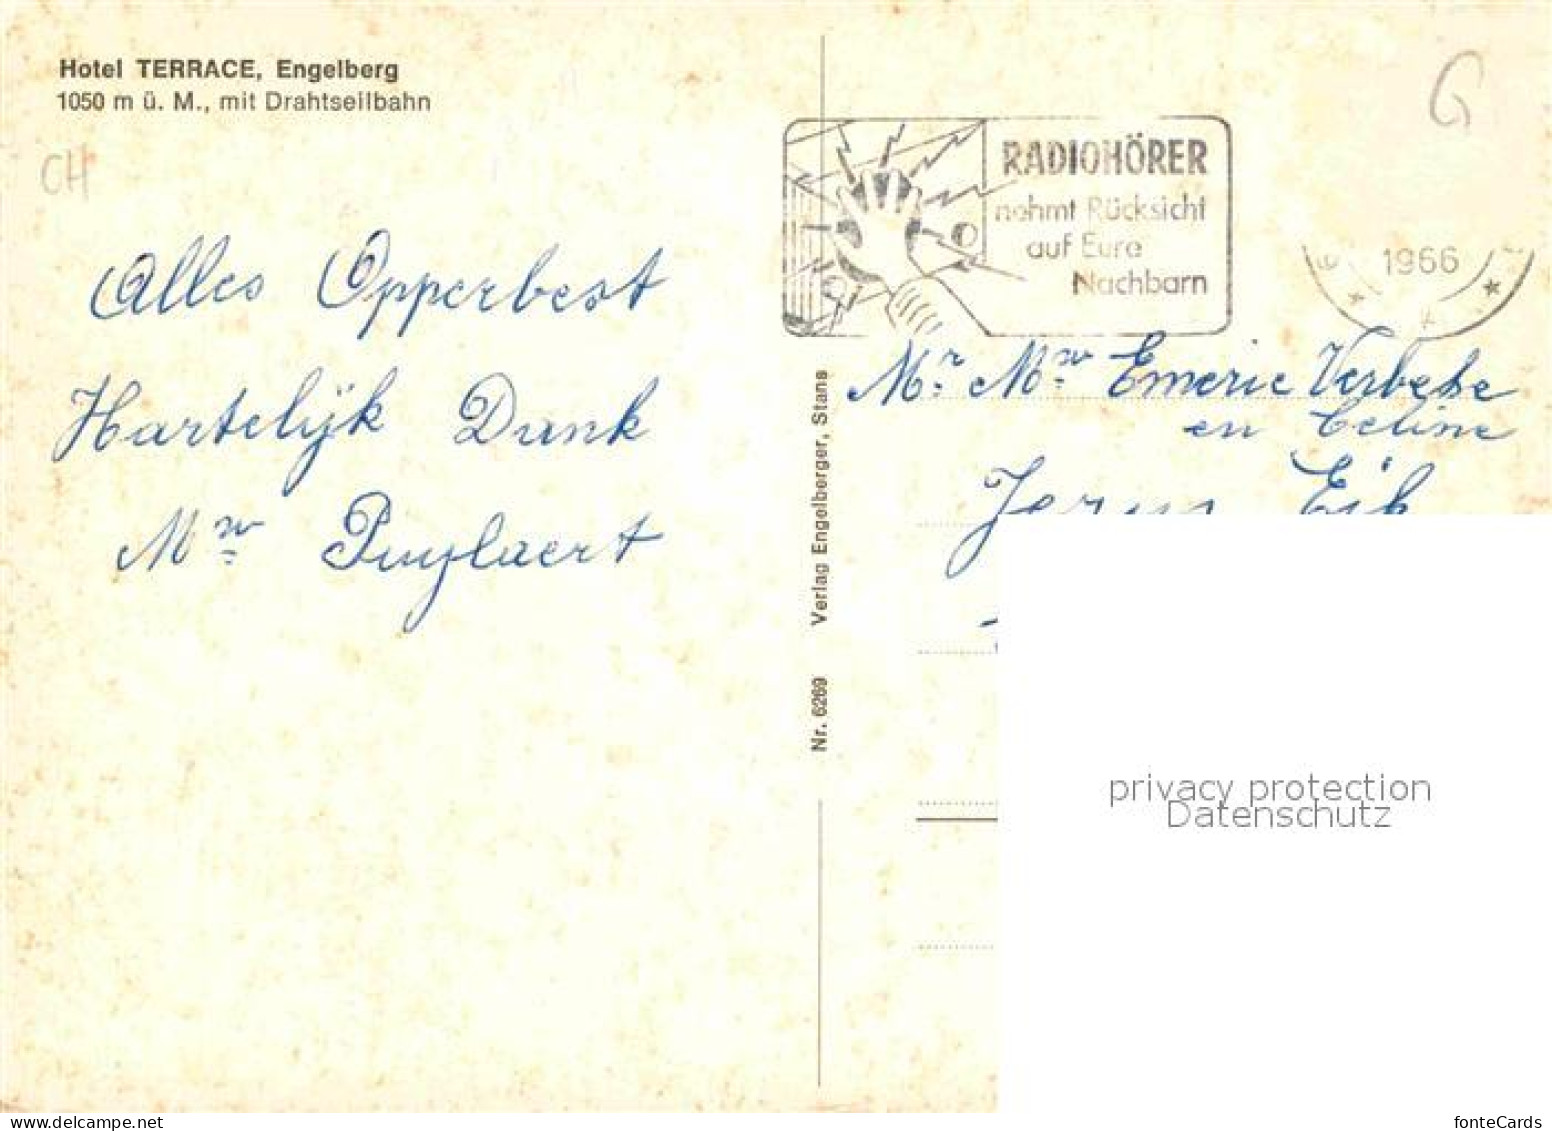 Hotel TERRACE, Engelberg
1050 m ü. M., mit Drahtseilbahn
CH
G
RADIOHÖRER
nehmt Rücksicht
auf Eure
Nachbarn
1966
Alles Opperbest
Hartelijk Dank
Mw Puylaert
Verlag Engelberger, Stans
Nr. 6269
Mr. Mw Emeric Verbeke
en Celine
privacy protection
Datenschutz
fonteCards